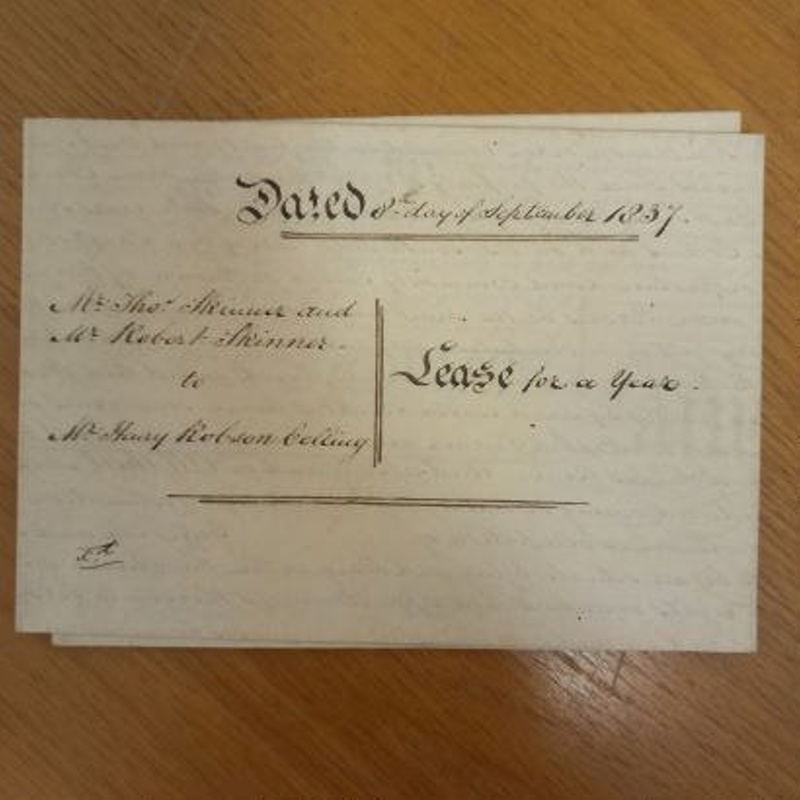 Dated 8th day of September 1837.
Mr. Thos. Skinner and
Mr. Robert Skinner.
to
Mr. Harry Robson Colling
Lease for a Year.